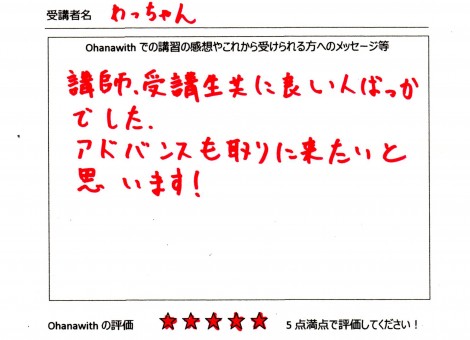 受講者名 わっちゃん
Ohanawith での講習の感想やこれから受けられる方へのメッセージ等
講師、受講生共に良い人ばっか
でした.
アドバンスも取りに来たいと
思います!
Ohanawith の評価 ★★★★★ 5 点満点で評価してください!